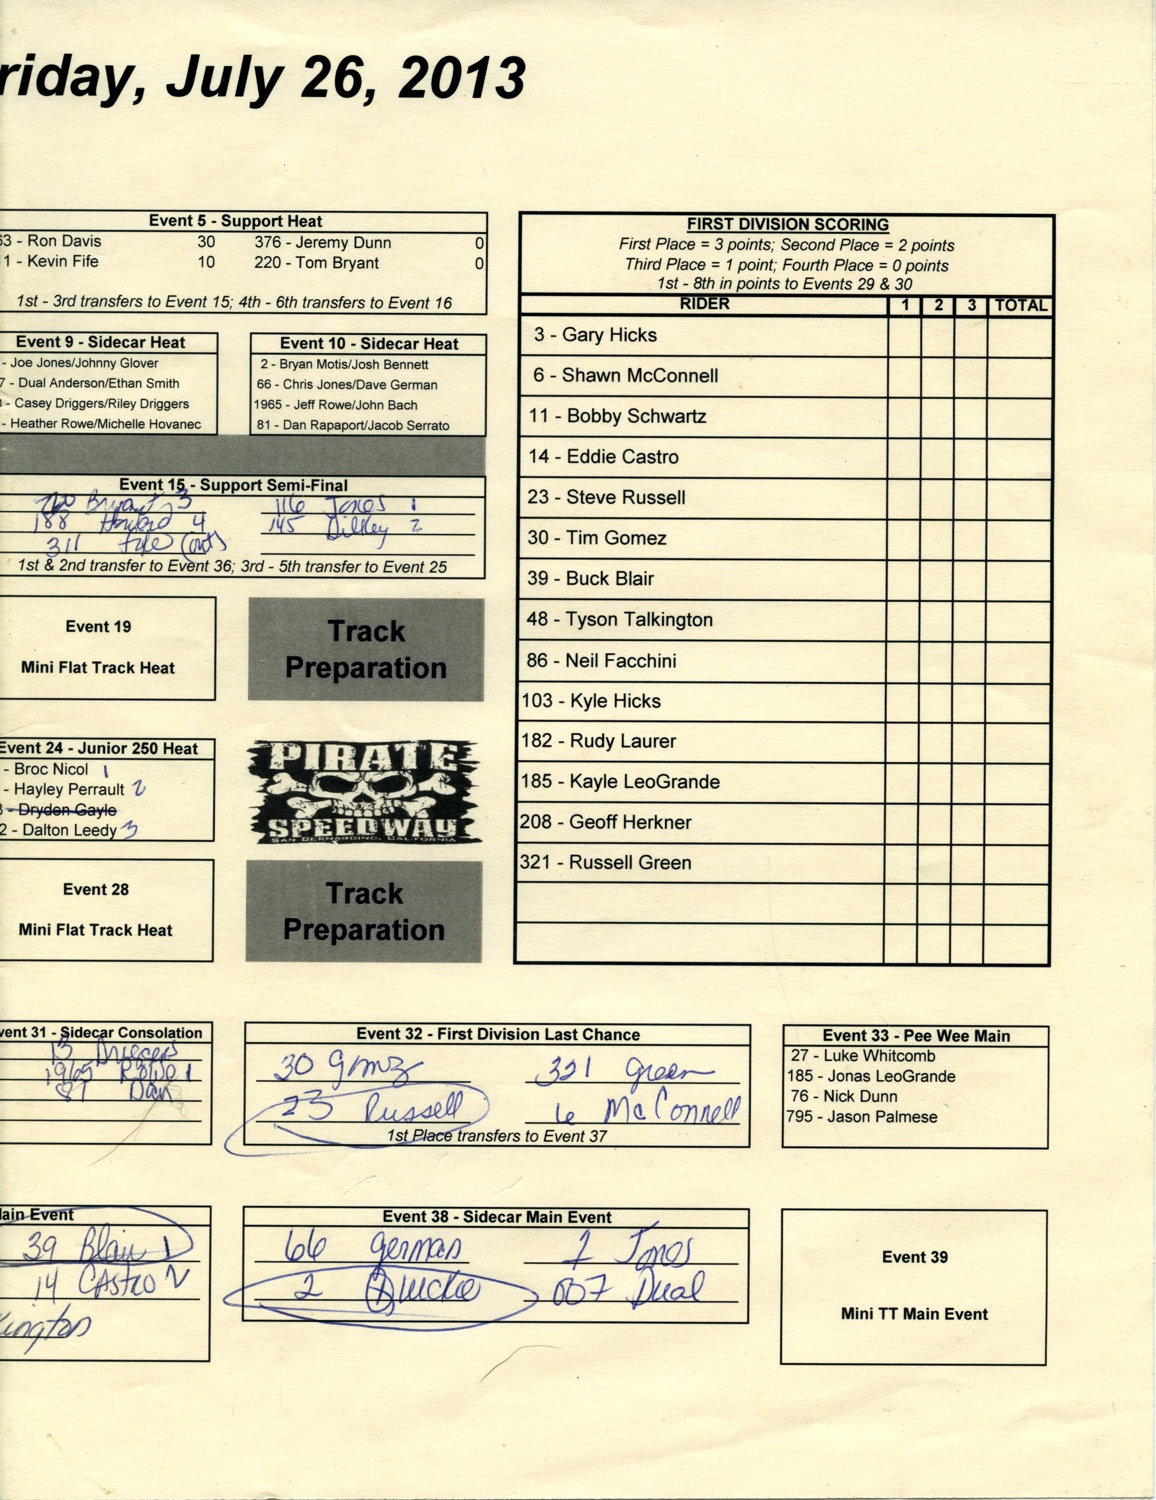 riday, July 26, 2013
Event 5 - Support Heat
63 - Ron Davis 30 376 - Jeremy Dunn 0
1 - Kevin Fife 10 220 - Tom Bryant 0
1st - 3rd transfers to Event 15; 4th - 6th transfers to Event 16
Event 9 - Sidecar Heat
- Joe Jones/Johnny Glover
7 - Dual Anderson/Ethan Smith
- Casey Driggers/Riley Driggers
- Heather Rowe/Michelle Hovanec
Event 10 - Sidecar Heat
2 - Bryan Motis/Josh Bennett
66 - Chris Jones/Dave German
1965 - Jeff Rowe/John Bach
81 - Dan Rapaport/Jacob Serrato
Event 15 - Support Semi-Final
220 Bryant 3 116 Jones 1
188 Howard 4 145 Dilkey 2
311 Fife (out)
1st & 2nd transfer to Event 36; 3rd - 5th transfer to Event 25
Event 19
Mini Flat Track Heat
Track
Preparation
Event 24 - Junior 250 Heat
- Broc Nicol 1
- Hayley Perrault 2
- Dryden Gayle
2 - Dalton Leedy 3
PIRATE
SPEEDWAY
SAN BERNARDINO, CALIFORNIA
Event 28
Mini Flat Track Heat
Track
Preparation
FIRST DIVISION SCORING
First Place = 3 points; Second Place = 2 points
Third Place = 1 point; Fourth Place = 0 points
1st - 8th in points to Events 29 & 30
RIDER 1 2 3 TOTAL
3 - Gary Hicks
6 - Shawn McConnell
11 - Bobby Schwartz
14 - Eddie Castro
23 - Steve Russell
30 - Tim Gomez
39 - Buck Blair
48 - Tyson Talkington
86 - Neil Facchini
103 - Kyle Hicks
182 - Rudy Laurer
185 - Kayle LeoGrande
208 - Geoff Herkner
321 - Russell Green
vent 31 - Sidecar Consolation
13 Driggers
1965 Rowe 1
81 Dan
Event 32 - First Division Last Chance
30 Gomz 321 Green
23 Russell 6 McConnell
1st Place transfers to Event 37
Event 33 - Pee Wee Main
27 - Luke Whitcomb
185 - Jonas LeoGrande
76 - Nick Dunn
795 - Jason Palmese
ain Event
39 Blair 1
14 Castro 2
kington
Event 38 - Sidecar Main Event
66 German 1 Jones
2 007 Dual
Event 39
Mini TT Main Event